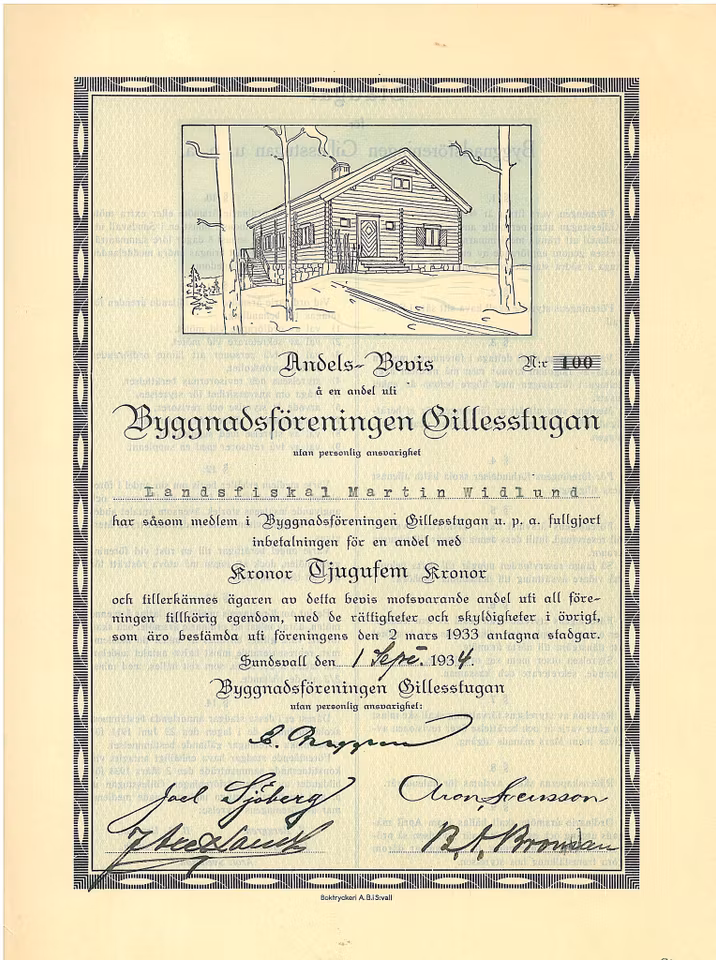 Andels-Bevis N:r 100
å en andel uti
Byggnadsföreningen Gillesstugan
utan personlig ansvarighet
Landsfiskal Martin Widlund
har såsom medlem i Byggnadsföreningen Gillesstugan u. p. a. fullgjort
inbetalningen för en andel med
Kronor Tjugufem Kronor
och tillerkännes ägaren av detta bevis motsvarande andel uti all före-
ningen tillhörig egendom, med de rättigheter och skyldigheter i övrigt,
som äro bestämda uti föreningens den 2 mars 1933 antagna stadgar.
Sundsvall den 1 Sept. 1934.
Byggnadsföreningen Gillesstugan
utan personlig ansvarighet:
Joel Sjöberg Aron Svensson
Boktryckeri A.B. i S:vall